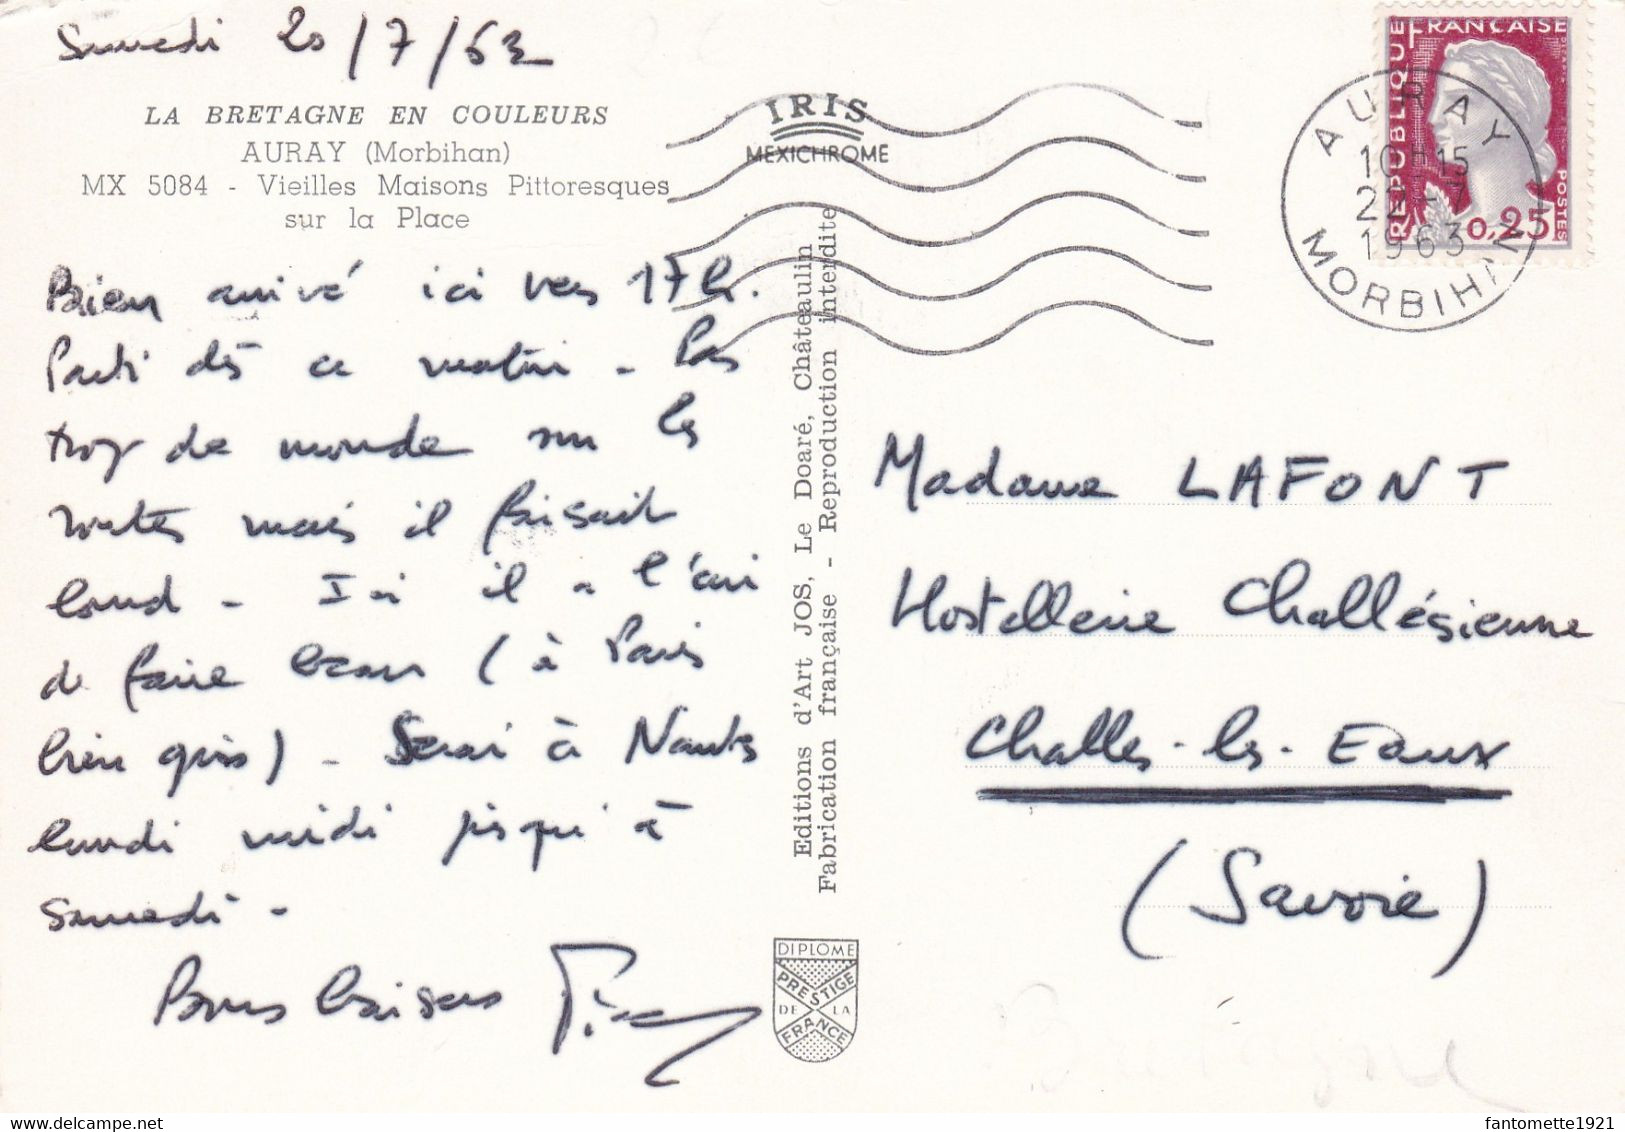 Samedi 20/7/63
LA BRETAGNE EN COULEURS
AURAY (Morbihan)
MX 5084 - Vieilles Maisons Pittoresques
sur la Place
Bien arrivé ici vers 17 h.
Parti dès ce matin - Pas
trop de monde sur les
routes mais il faisait
lourd - Ici il a l'air
de faire beau (à Paris
bien gris) - Serai à Nantes
lundi midi jusqu'à
samedi -
Bons baisers
IRIS
MEXICHROME
Editions d'Art JOS, Le Doaré, Châteaulin
Fabrication française - Reproduction interdite
DIPLOME
PRESTIGE
DE LA
FRANCE
REPUBLIQUE FRANÇAISE
POSTES
0,25
AURAY
10H15
22-7
1963
MORBIHAN
Madame LAFONT
Hostellerie Challésienne
Challes-les-Eaux
(Savoie)
fantomette1921